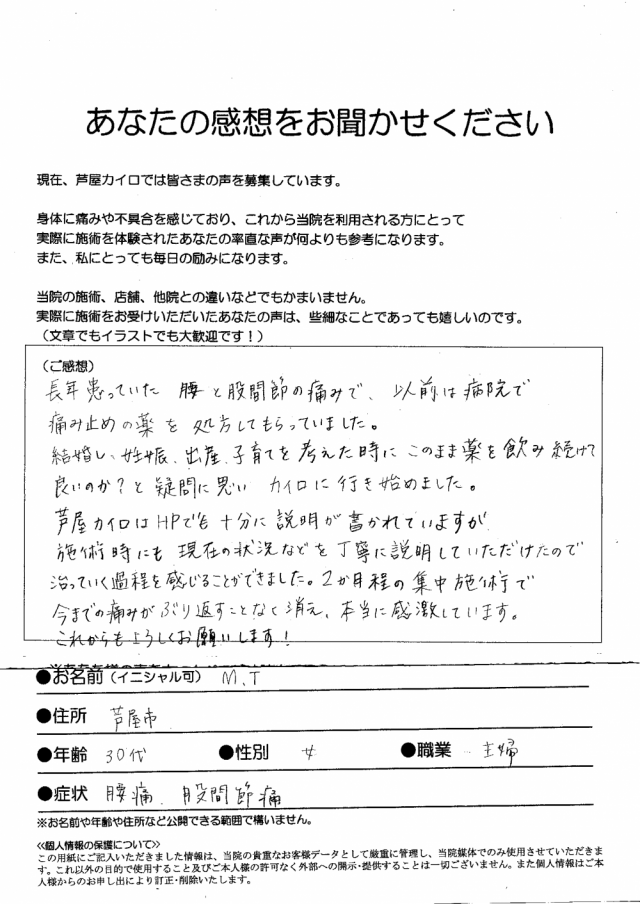 あなたの感想をお聞かせください
現在、芦屋カイロでは皆さまの声を募集しています。
身体に痛みや不具合を感じており、これから当院を利用される方にとって
実際に施術を体験されたあなたの率直な声が何よりも参考になります。
また、私にとっても毎日の励みになります。
当院の施術、店舗、他院との違いなどでもかまいません。
実際に施術をお受けいただいたあなたの声は、些細なことであっても嬉しいのです。
（文章でもイラストでも大歓迎です！）
（ご感想）
長年患っていた 腰と股間節の痛みで、以前は病院で
痛み止めの薬を 処方してもらっていました。
結婚し、妊娠、出産、子育てを考えた時に このまま薬を飲み続けて
良いのか？と疑問に思い カイロに行き始めました。
芦屋カイロはHPでも十分に説明が書かれていますが
施術時にも現在の状況などを丁寧に説明していただけたので
治っていく過程を感じることができました。2か月程の集中施術で
今までの痛みがぶり返すことなく消え、本当に感激しています。
これからもよろしくお願いします！
●お名前（イニシャル可） M.T
●住所 芦屋市
●年齢 30代 ●性別 女 ●職業 主婦
●症状 腰痛、股間節痛
※お名前や年齢や住所など公開できる範囲で構いません。
≪個人情報の保護について≫
この用紙にご記入いただきました情報は、当院の貴重なお客様データとして厳重に管理し、当院媒体でのみ使用させていただきま
す。これ以外の目的で使用すること及びご本人様の許可なく外部への開示・提供することは一切ございません。また個人情報はご本
人様からのお申し出により訂正・削除いたします。